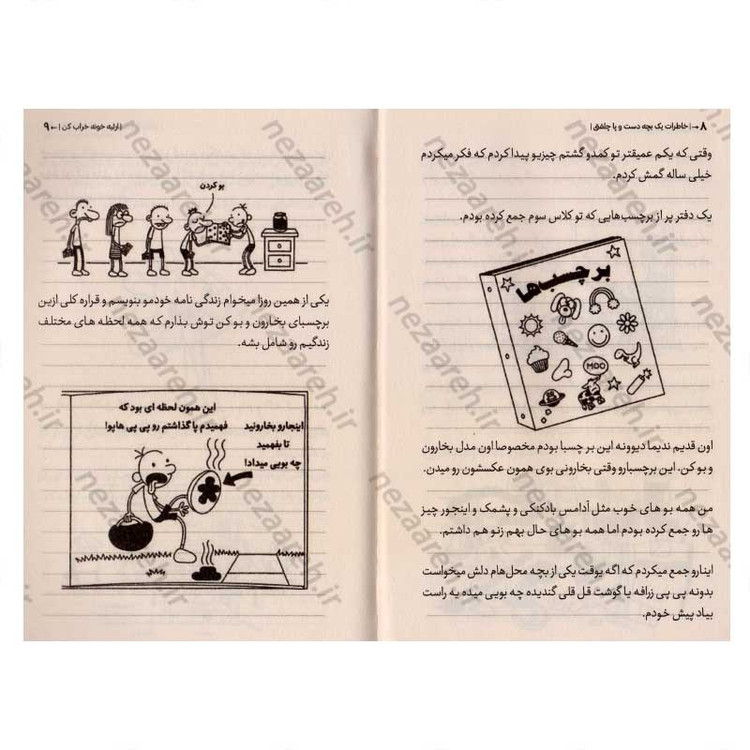 ۸ → | خاطرات یک بچه دست و پا چلفتی |
وقتی که یکم عمیقتر تو کمدو گشتم چیزیو پیدا کردم که فکر میکردم
خیلی ساله گمش کردم.
یک دفتر پر از برچسب‌هایی که تو کلاس سوم جمع کرده بودم.
برچسب‌ها
MOO
اون قدیم ندیما دیوونه این بر چسبا بودم مخصوصا اون مدل بخارون
و بو کن. این برچسبارو وقتی بخارونی بوی همون عکسشون رو میدن.
من همه بو های خوب مثل آدامس بادکنکی و پشمک و اینجور چیز
ها رو جمع کرده بودم اما همه بو های حال بهم زنو هم داشتم.
اینارو جمع میکردم که اگه یوقت یکی از بچه محل‌هام دلش میخواست
بدونه پی پی زرافه یا گوشت قل قلی گندیده چه بویی میده یه راست
بیاد پیش خودم.
| ازلیه خونه خراب کن | ← ۹
بو کردن
یکی از همین روزا میخوام زندگی نامه خودمو بنویسم و قراره کلی ازین
برچسبای بخارون و بو کن توش بذارم که همه لحظه های مختلف
زندگیم رو شامل بشه.
این همون لحظه ای بود که
فهمیدم پا گذاشتم رو پی پی هاپو!
اینجارو بخارونید
تا بفهمید
چه بویی میداد!
nezaareh.ir
nezaareh.ir
nezaareh.ir
nezaareh.ir
nezaareh.ir
nezaareh.ir